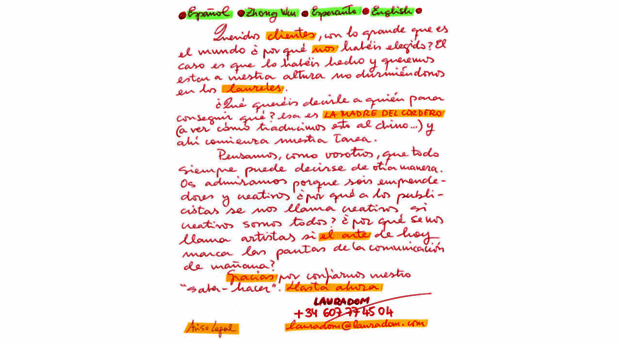 Español Zhong Wen Esperanto English
Queridos clientes, con lo grande que es
el mundo ¿por qué nos habéis elegido? El
caso es que lo habéis hecho y queremos
estar a vuestra altura no durmiéndonos
en los laureles.
¿Qué queréis decirle a quién para
conseguir qué? Esa es LA MADRE DEL CORDERO
(a ver cómo traducimos esto al chino...) y
ahí comienza nuestra tarea.
Pensamos, como vosotros, que todo
siempre puede decirse de otra manera.
Os admiramos porque sois emprende-
dores y creativos ¿por qué a los publi-
cistas se nos llama creativos si
creativos somos todos? ¿por qué se nos
llama artistas si el arte de hoy
marca las pautas de la comunicación
de mañana?
Gracias por confiarnos nuestro
"saber-hacer". Hasta ahora
LAURADOM
+34 607 77 45 04
Aviso Legal lauradom@lauradom.com